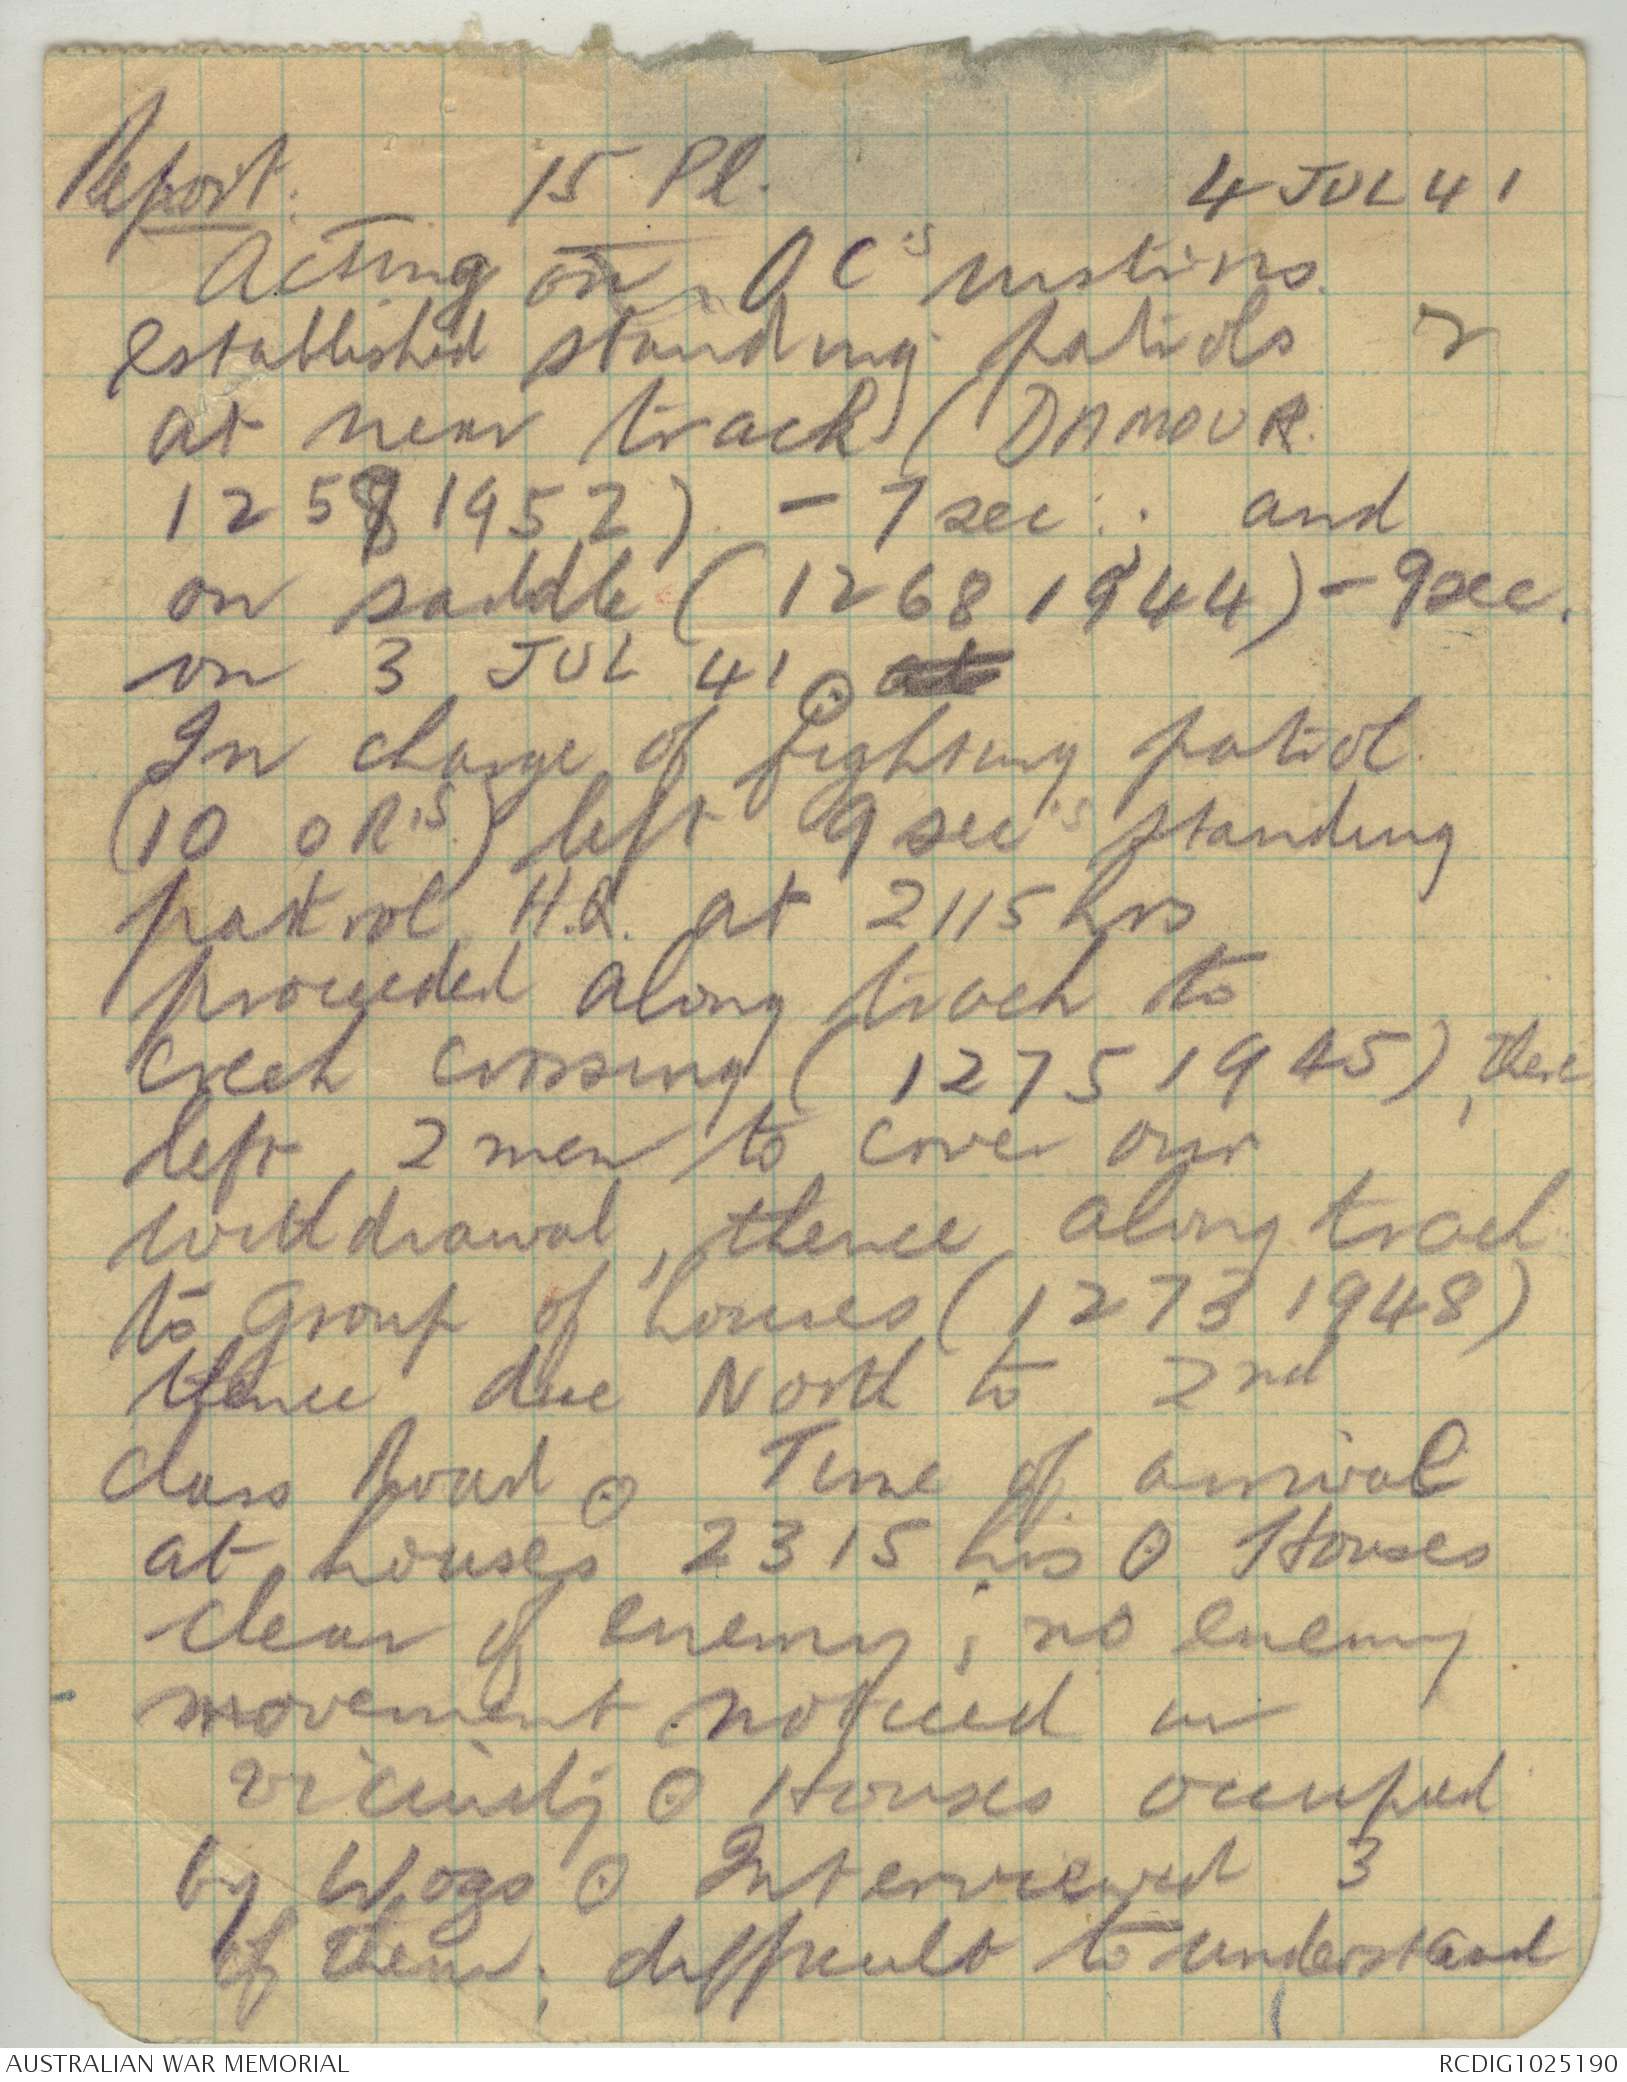 Report. 15 Pl. 4 JUL 41
Acting on OC's instrns.
established standing patrols
at near track (DAMOUR.
1258 1952) - 7 sec. and
on saddle (1268 1944) - 9 sec.
on 3 JUL 41 ⊙ at
In charge of fighting patrol
(10 OR's) left 9 sec's standing
patrol H.Q. at 2115 hrs
proceeded along track to
creek crossing (1275 1945), there
left 2 men to cover our
withdrawal, thence along track
to Group of houses (1273 1948)
thence due North to 2nd
class Road ⊙ Time of arrival
at houses 2315 hrs ⊙ Houses
clear of enemy; no enemy
movement noticed in
vicinity ⊙ Houses occupied
by Wogs ⊙ Interviewed 3
of them; difficult to understand
AUSTRALIAN WAR MEMORIAL RCDIG1025190